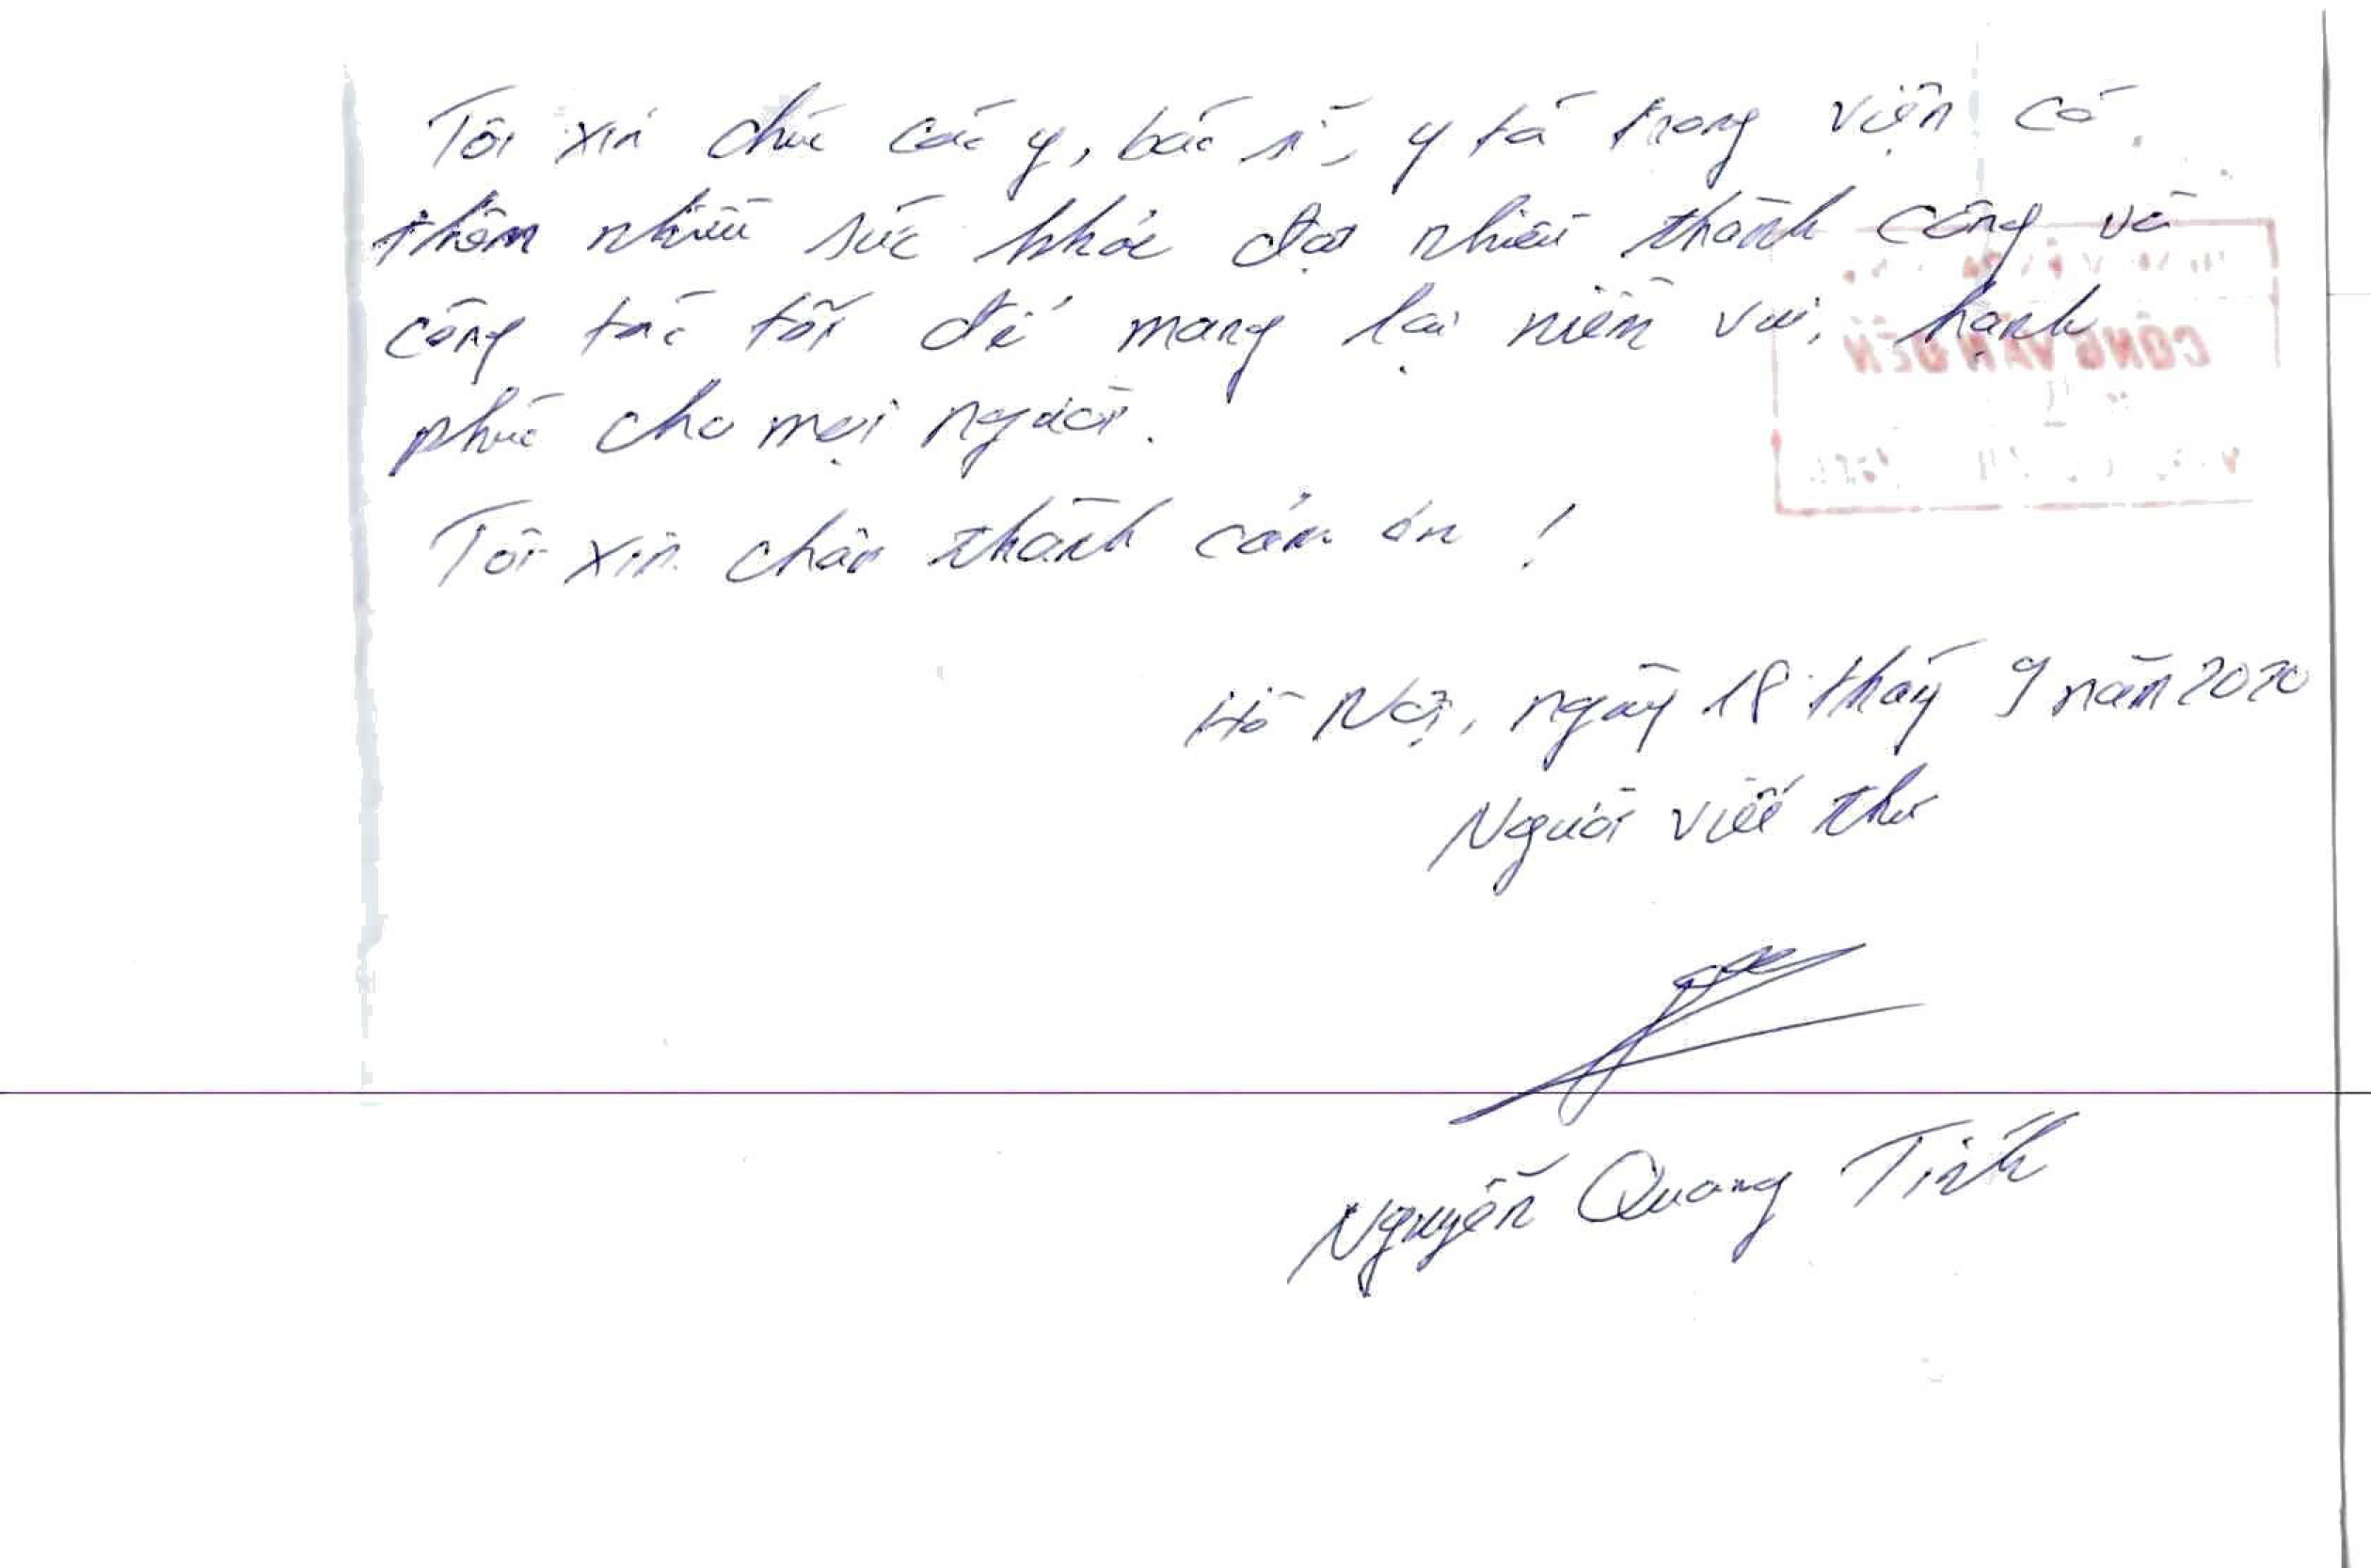 Tôi xin chúc các y, bác sĩ, y tá trong viện có
thêm nhiều sức khỏe đạt nhiều thành công và
công tác tốt để mang lại niềm vui, hạnh
phúc cho mọi người.
Tôi xin chân thành cảm ơn !
CÔNG VĂN ĐẾN
Hà Nội, ngày 18 tháng 9 năm 2020
Người viết thư
Nguyễn Quang Tính